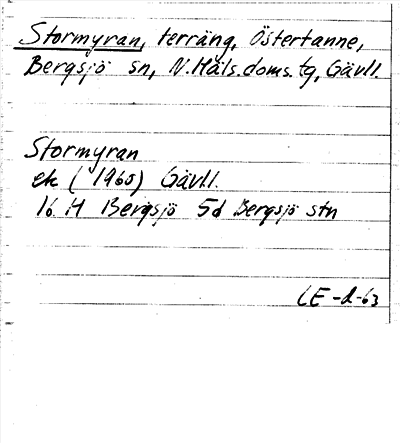 Stormyran, terräng, Östertanne,
Bergsjö sn, N.Häls.doms.tg, Gävll.
Stormyran
ek (1965) Gävll.
16 H Bergsjö 5d Bergsjö stn
LE-d-63